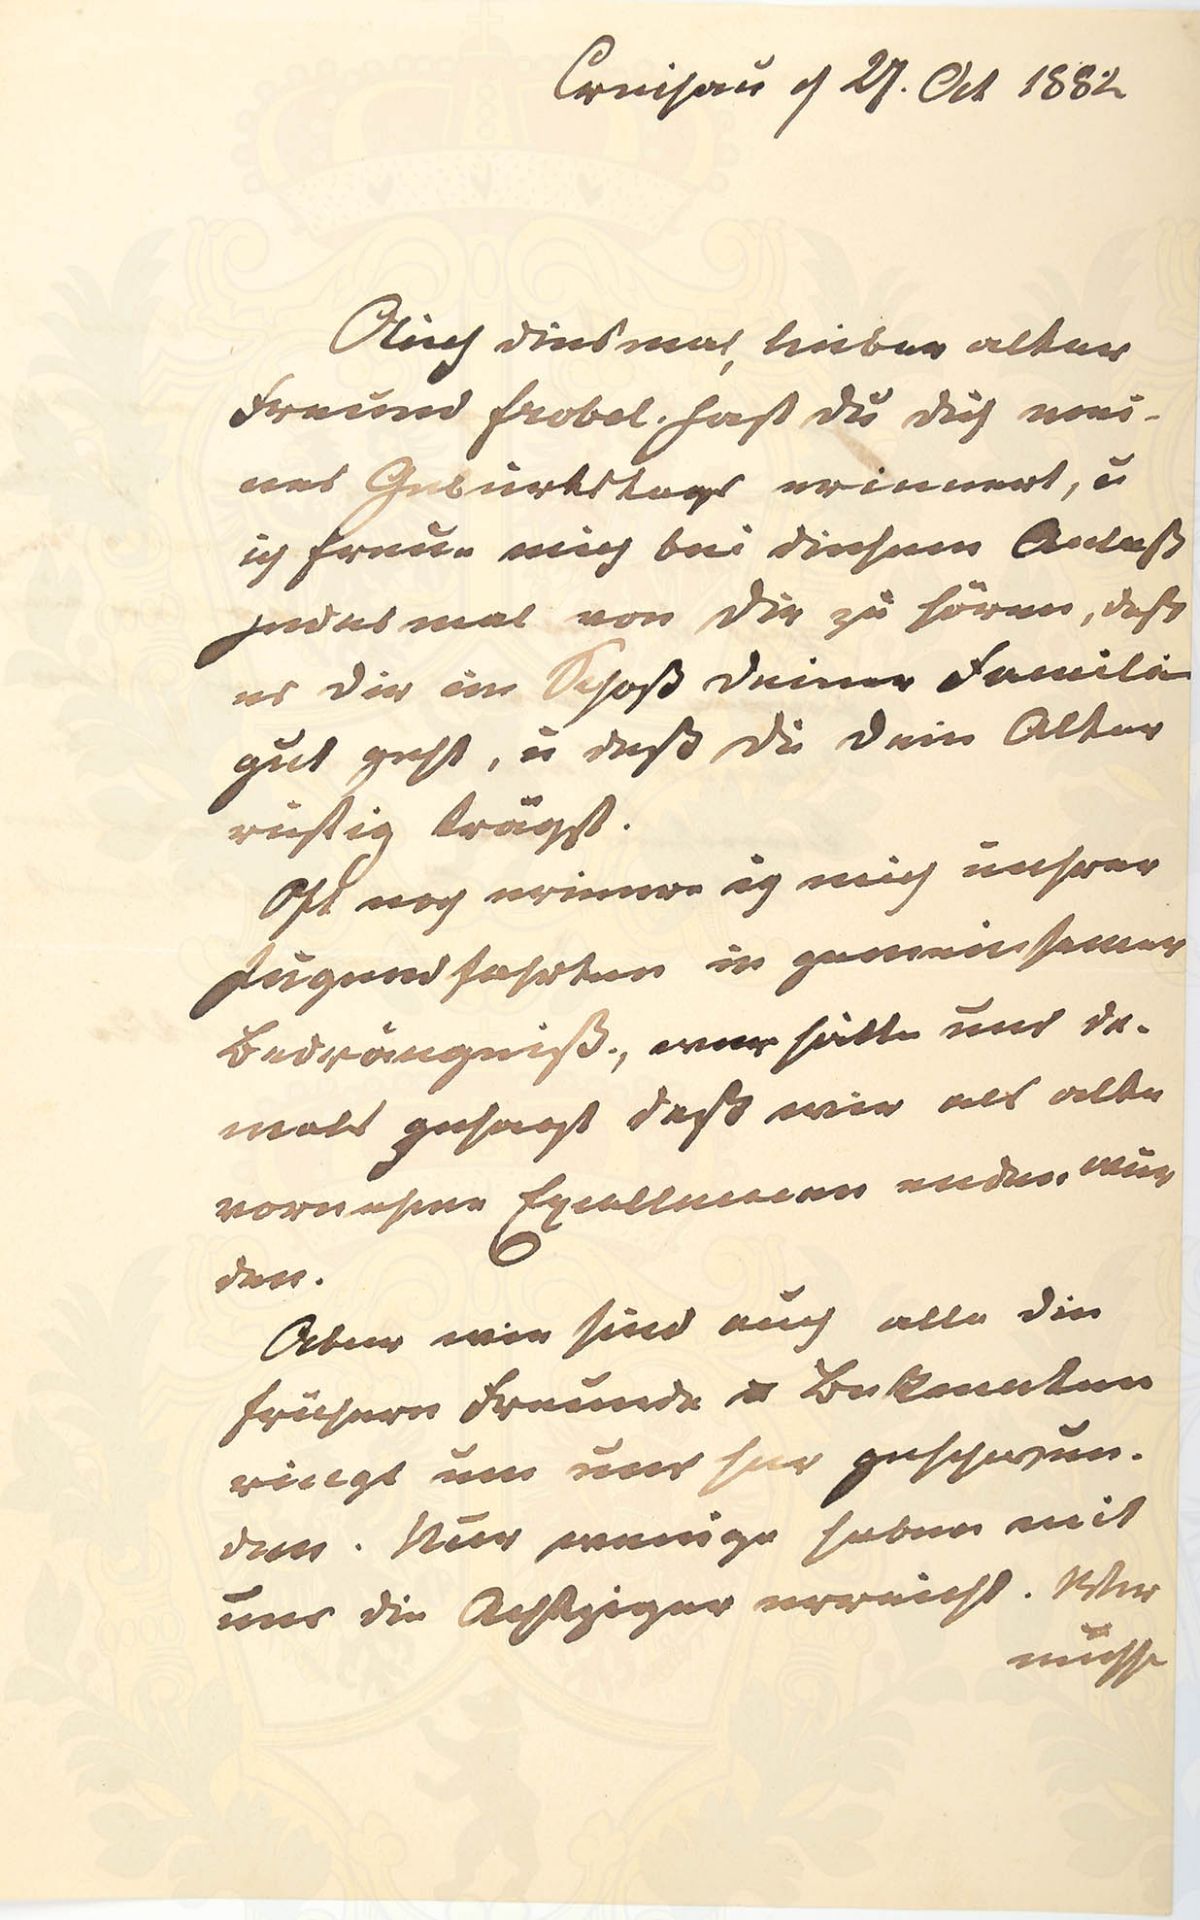 Creisau d 27. Oct 1882
Auch diesmal, lieber alter
Freund Frobel. hast du dich mei-
nes Geburtstags erinnert, u
ich freue mich bei diesem Anlaß
jedesmal von Dir zu hören, daß
es Dir im Schoß Deiner Familie
gut geht, u daß Du Dein Alter
rüstig trägst.
Oft noch erinnere ich mich unsrer
Jugendfahrten in gemeinsamer
Bedrängniß, wer hätte uns da-
mals gesagt daß wir als alte
vornehme Excellenzen enden wür
den.
Aber wie sind auch alle die
frühern Freunde u Bekannten
rings um uns her geschwun-
den. Nur wenige haben mit
uns die Achtziger erreicht. Wir
müsse